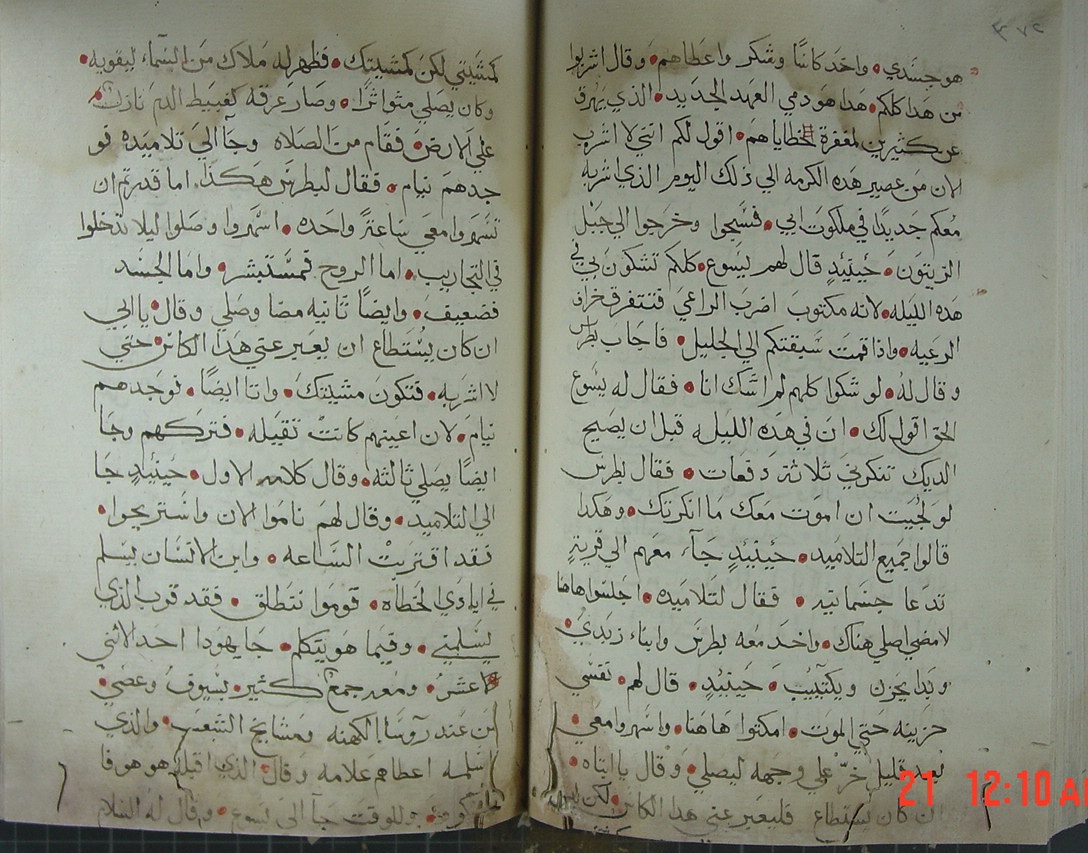 ٣٧٢
هو جسدي • واخد كاسًا وشكر واعطاهم • وقال اشربوا
من هدا كلكم • هدا هو دمي العهد الجديد • الذي يهرق
عن كثيرين لمغفرة خطاياهم • اقول لكم انني لا اشرب
الان من عصير هده الكرمه الي ذلك اليوم الذي اشربه
معكم جديدًا في ملكوت ابي • فسبحوا وخرجوا الي جبل
الزيتون • حينيدٍ قال لهم يسوع • كلكم تشكون بي في
هده الليله • لانه مكتوب اضرب الراعي فتتفرق خراف
الرعيه • واذا قمت سبقتكم الي الجليل • فاجاب بطرس
وقال له • لو شكوا كلهم لم اشك انا • فقال له يسوع
الحق اقول لك • ان في هده الليله قبل ان يصيح
الديك تنكرني ثلاثة دفعات • فقال بطرس
لو لجيت ان اموت معك ما انكرتك • وهكدا
قالوا جميع التلاميد • حينيدٍ جآء معهم الي قريةٍ
تدعا جسمانيه • فقال لتلاميده • اجلسوا هاهنا
لامضي اصلي هناك • واخد معه بطرس وابناء زبدي •
وبدا يحزن ويكتيب • حينيدٍ • قال لهم • نفسي
حزينه حتي الموت • امكتوا هاهنا • واسهروا معي •
قليل خرّ علي وجهه ليصلي • وقال يا ابتاه •
ان كان يستطاع فليعبر عني هدا الكاس • لكن ليس
كمشيتي لكن كمشيتك • فظهر له ملاك من السماء ليقويه •
وكان يصلي متواترًا • وصار عرقه كعبيط الدم نازل
علي الارض • فقام من الصلاه وجآ الي تلاميده فو
جدهم نيام • فقال لبطرس هكذا • اما قدرتم ان
تسهروا معي ساعةً واحده • اسهروا وصلوا ليلا تدخلوا
في التجاريب • اما الروح فمستبشر • واما الجسد
فضعيف • وايضًا تانيه مضا وصلي وقال • يا ابي
ان كان يستطاع ان يعبر عني هدا الكاس • حتي
لا اشربه • فتكون مشيتك • واتا ايضًا • فوجدهم
نيام • لان اعينهم كانت تقيله • فتركهم وجا
ايضًا يصلي ثالثه • وقال كلامه الاول • حينيدٍ جا
الي التلاميد • وقال لهم ناموا الان واستريحوا •
فقد اقتربت الساعه • وابن الانسان يسلم
في ايادي الخطاه • قوموا ننطلق • فقد قرب الذي
يسلمني • وفيما هو يتكلم • جا يهودا احد الاثني
عشر • ومعه جمع كثير • بسيوف وعصي •
من عند روسا الكهنه ومشايخ الشعب • والذي
اسلمه اعطاهم علامه وقال • الذي اقبله هو هو فا
وللوقت جآ الي يسوع • وقال له السلام
21 12:10 AM